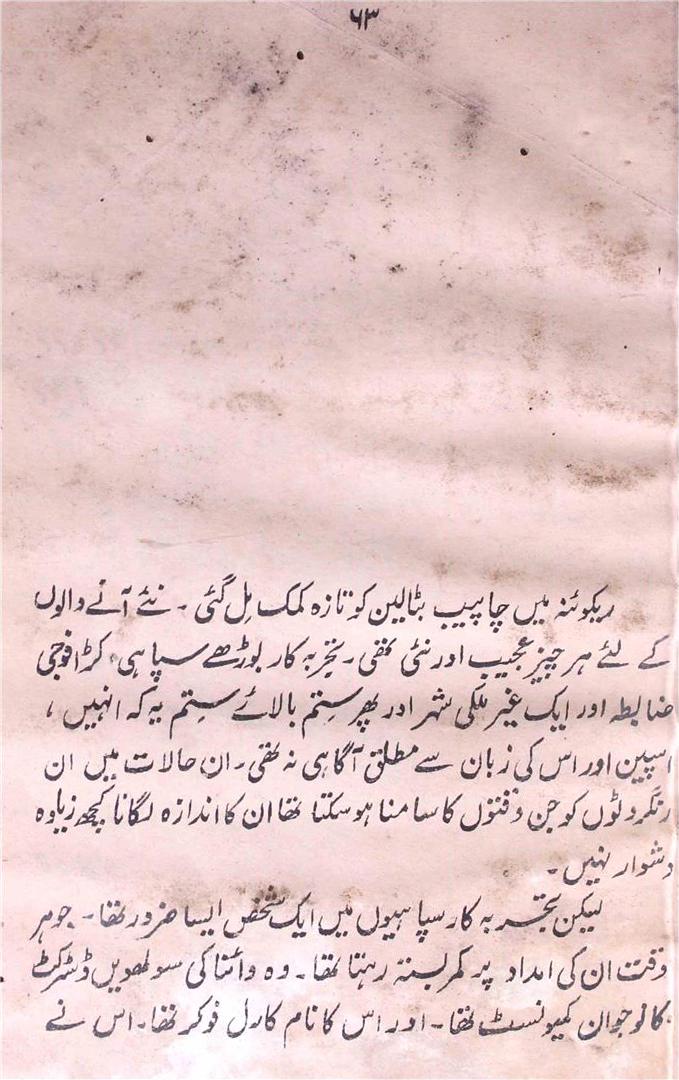 ۶۳
ریکوئنہ میں چاپیب بٹالین کو تازہ کمک مِل گئی ۔ نئے آنے والوں
کے لئے ہر چیز عجیب اور نئی تھی ۔ تجربہ کار بوڑھے سپاہی، کڑا فوجی
ضابطہ اور ایک غیر ملکی شہر اور پھر ستم بالائے ستم یہ کہ انہیں ،
اسپین اور اس کی زبان سے مطلق آگاہی نہ تھی ۔ ان حالات میں ان
رنگروٹوں کو جن دقتوں کا سامنا ہو سکتا تھا ان کا اندازہ لگانا کچھ زیادہ
دشوار نہیں ۔
لیکن تجربہ کار سپاہیوں میں ایک شخص ایسا ضرور تھا ۔ جو ہر
وقت ان کی امداد پر کمر بستہ رہتا تھا ۔ وہ وائنا کی سولھویں ڈسٹرکٹ
کا نوجوان کمیونسٹ تھا ۔ اور اس کا نام کارل فوکر تھا ۔ اس نے